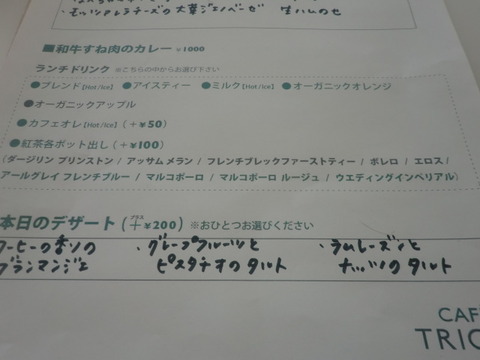 モッツアレラチーズの大葉ジェノベーゼ 生ハムのせ
■和牛すね肉のカレー ¥1000
ランチドリンク ※こちらの中からお選び下さい
●ブレンド【Hot/Ice】 ●アイスティー ●ミルク【Hot/Ice】 ●オーガニックオレンジ
●オーガニックアップル
●カフェオレ【Hot/Ice】(+¥50)
●紅茶各ポット出し(+¥100)
(ダージリン プリンストン / アッサム メラン / フレンチブレックファーストティー / ボレロ / エロス /
アールグレイ フレンチブルー / マルコポーロ / マルコポーロ ルージュ / ウエディングインペリアル)
本日のデザート(+プラス¥200) ※おひとつお選びください
コーヒーの香りの ・グレープフルーツと ・ラムレーズンと
ブランマンジェ ピスタチオのタルト ナッツのタルト
CAF
TRIO